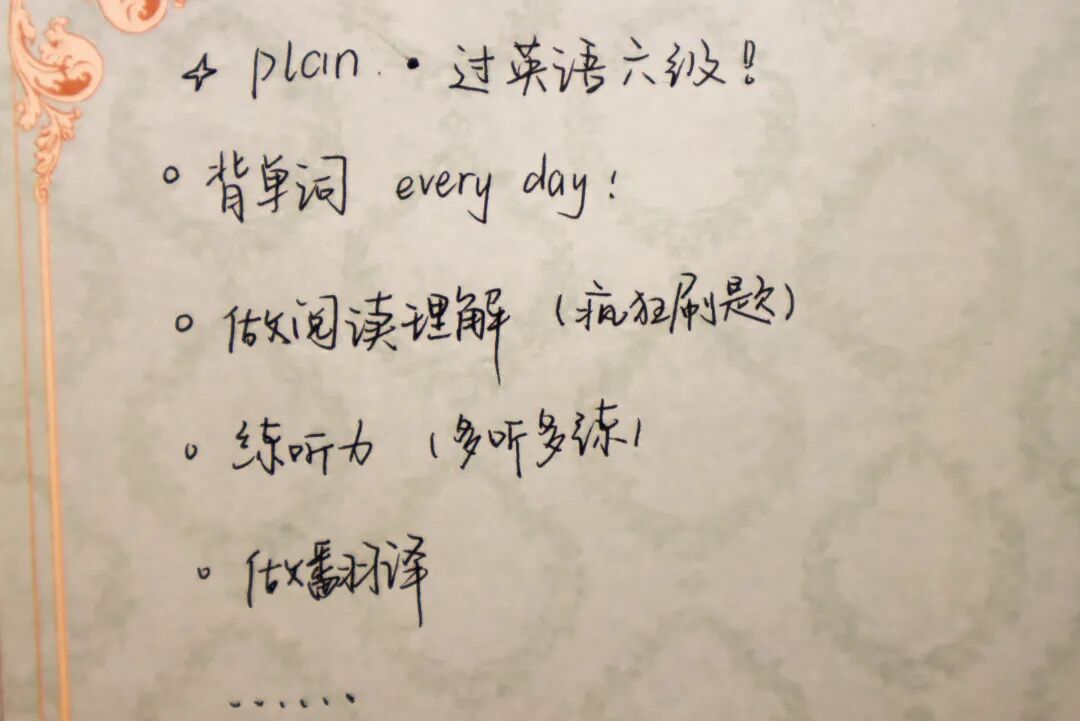 ☆ plan · 过英语六级!
○ 背单词 every day!
○ 做阅读理解 (疯狂刷题)
○ 练听力 (多听多练)
○ 做翻译
......